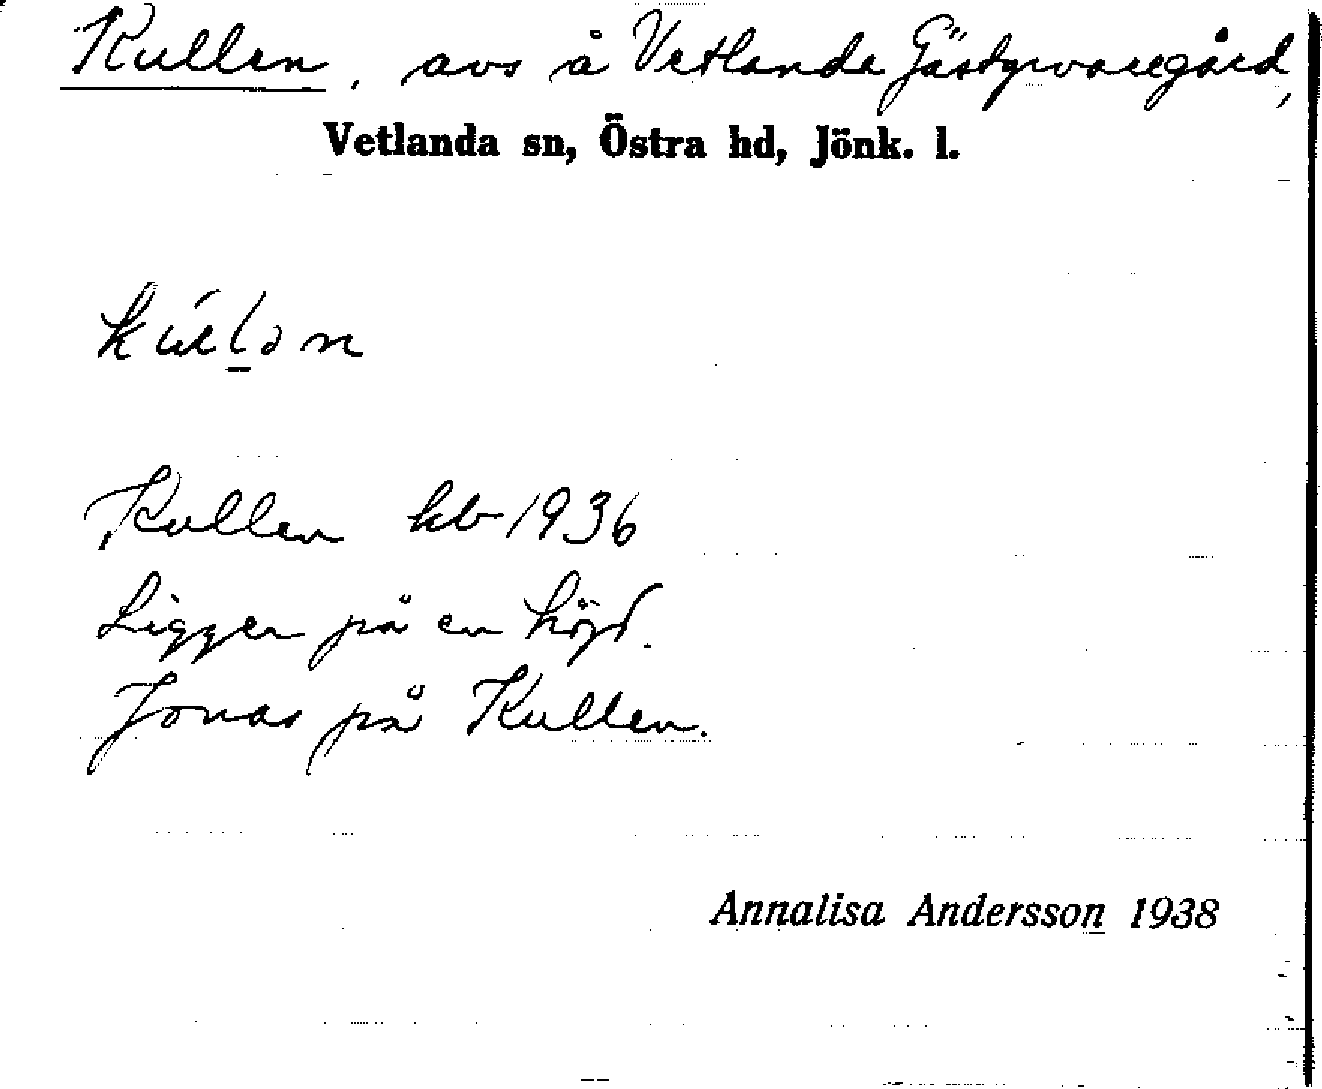 Kullen, avs å Vetlanda Gästgivaregård,
Vetlanda sn, Östra hd, Jönk. l.
Kullen kb 1936
Ligger på en höjd.
Jonas på Kullen.
Annalisa Andersson 1938